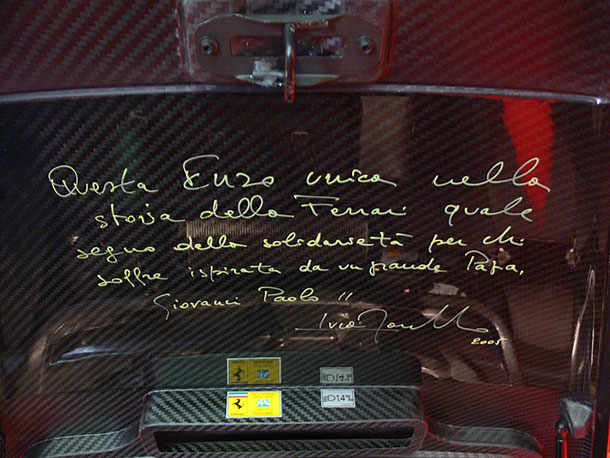 Questa Enzo unica nella
storia della Ferrari quale
segno della solidarietà per chi
soffre ispirata da un grande Papa,
Giovanni Paolo II
2005
D14%